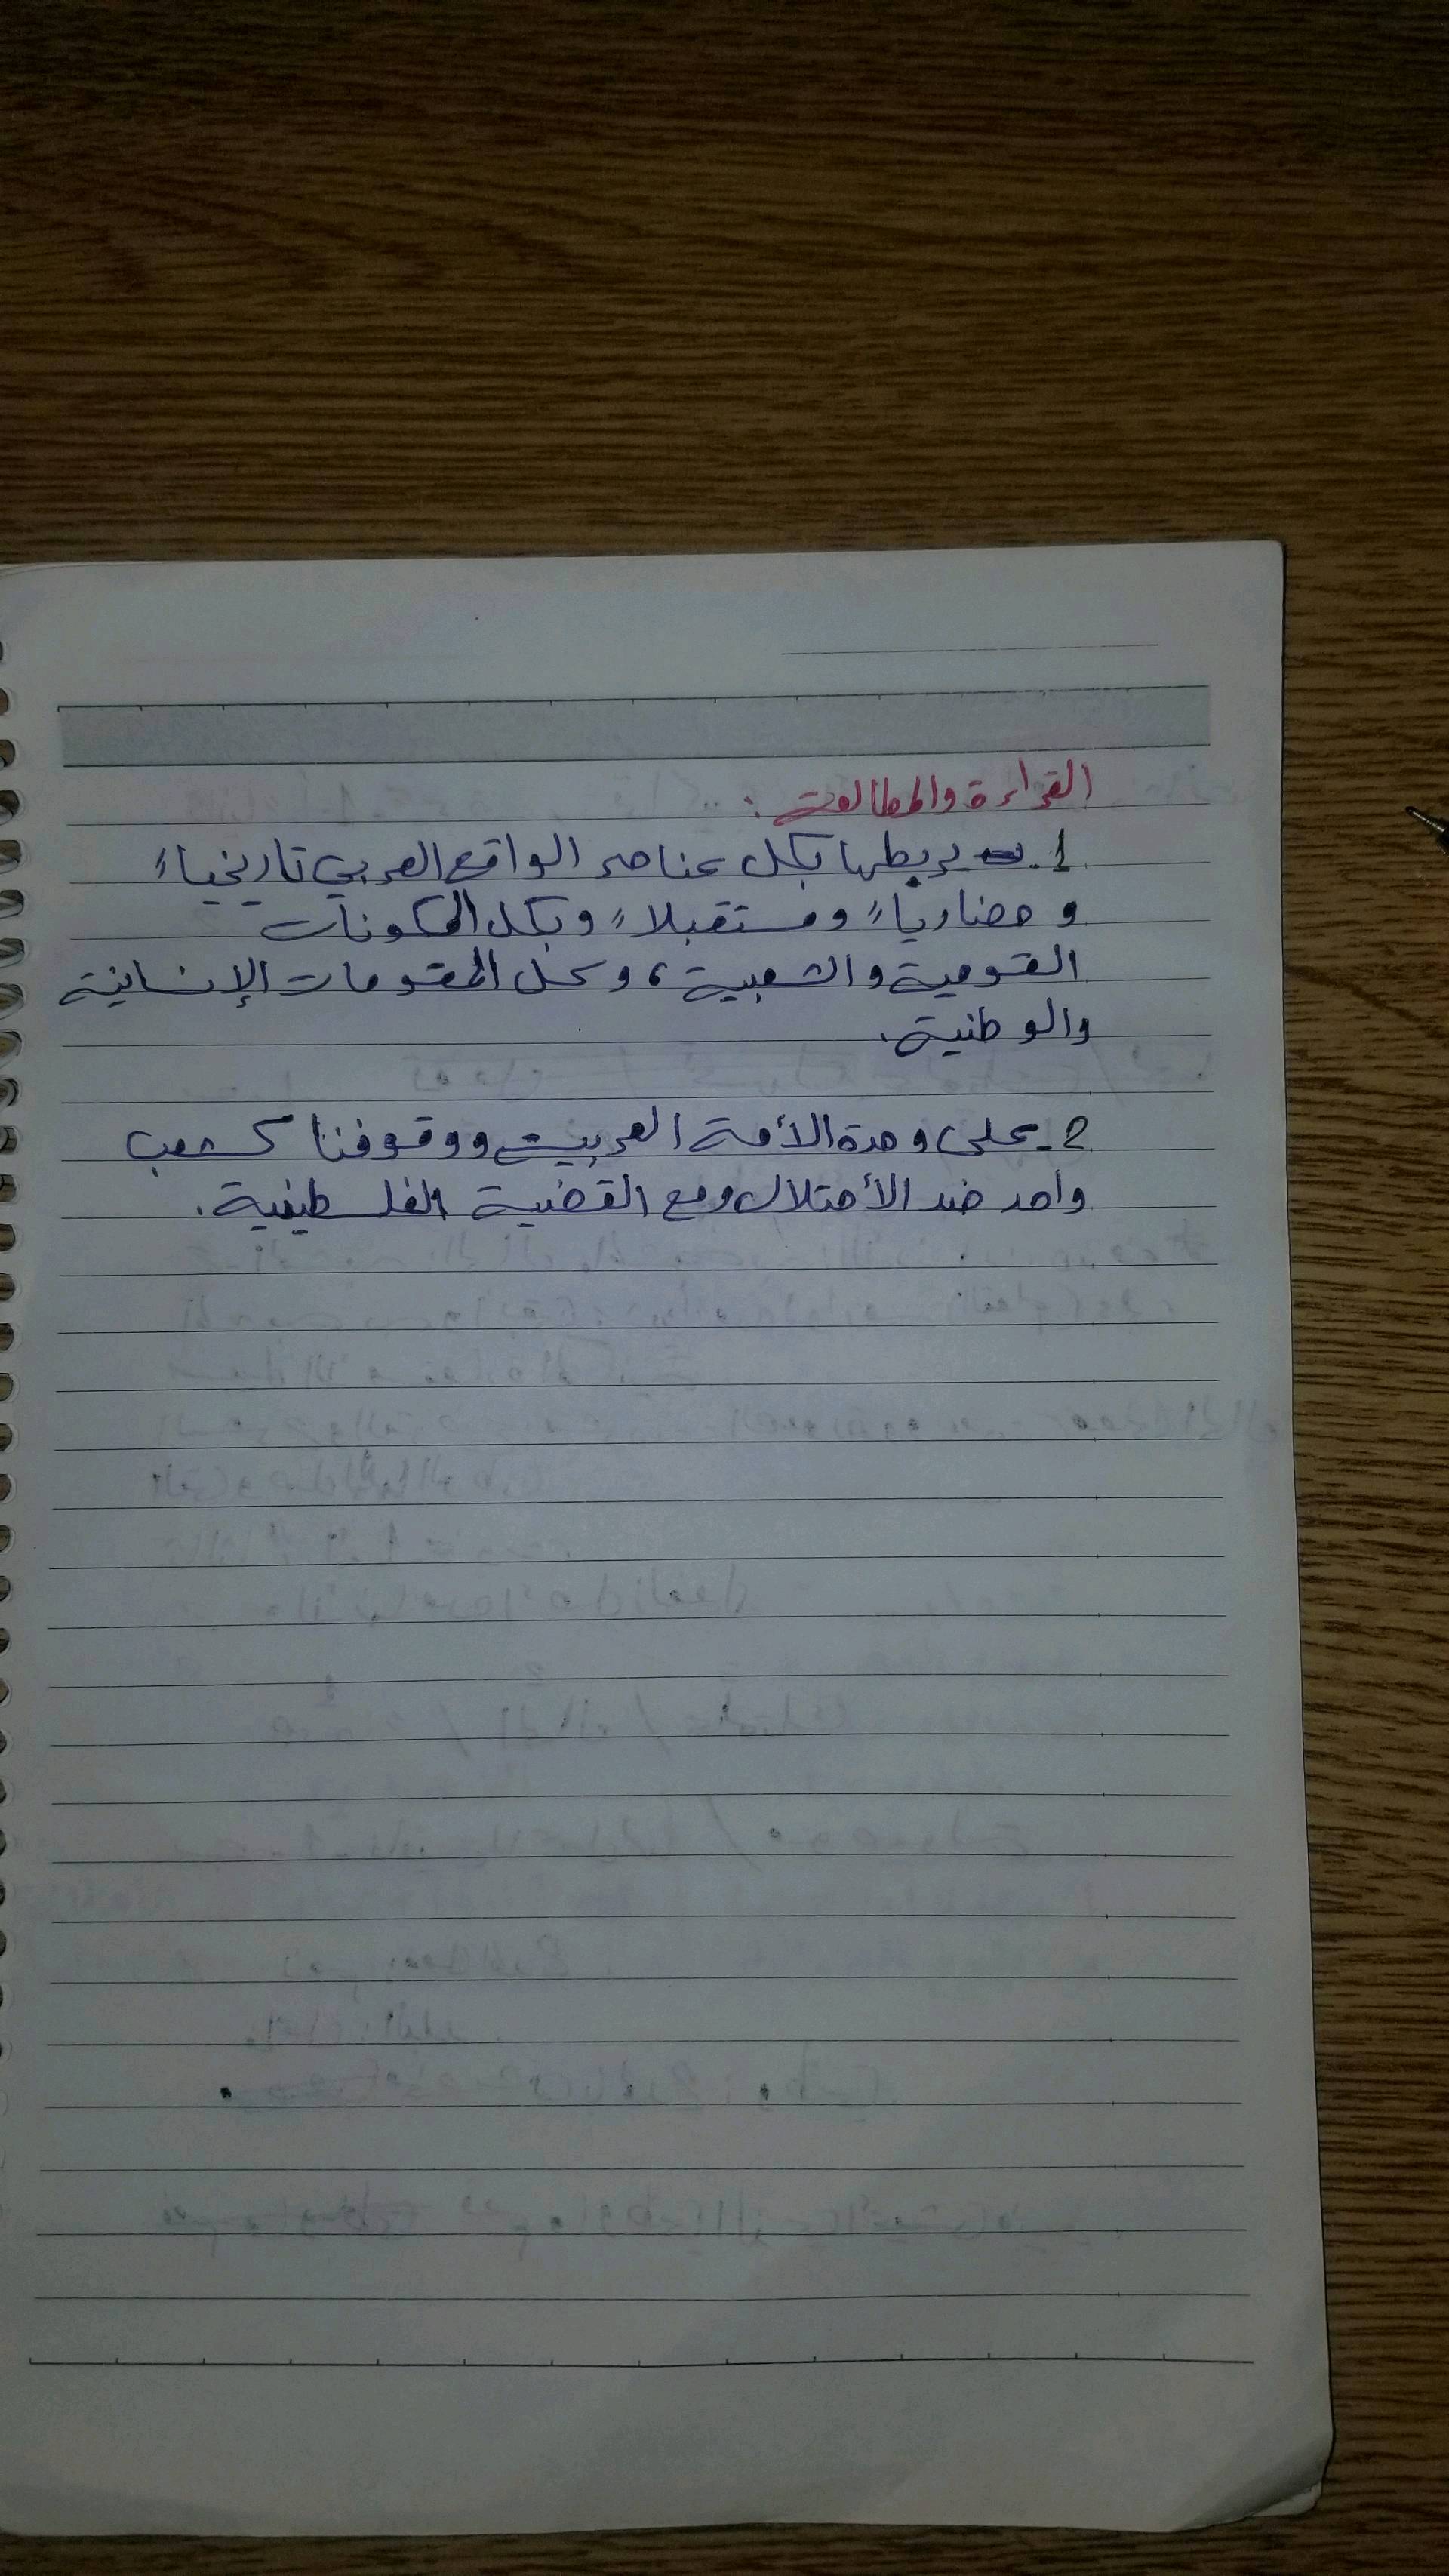 القراءة والمطالعة :
1. يربطها بكل عناصر الواقع العربي تاريخياً
و حضارياً ومستقبلاً وبكل المكونات
القومية والشعبية ، وكل المقومات الإنسانية
والوطنية .
2- على وحدة الأمة العربية ووقوفنا كشعب
واحد ضد الأحتلال ومع القضية الفلسطينية .